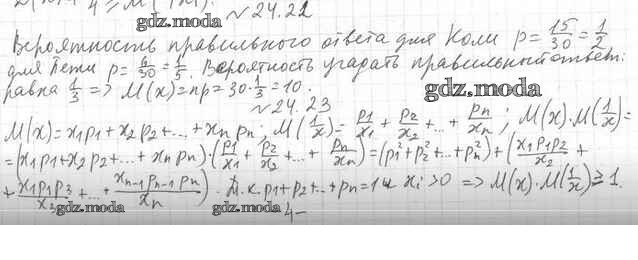 № 24.22
Вероятность правильного ответа для Коли p = 15/30 = 1/2
gdz.moda
для Пети p = 6/30 = 1/5. Вероятность угадать правильный ответ:
равна 1/3 => M(x) = np = 30·1/3 = 10.
gdz.moda
№ 24.23
M(x) = x₁p₁ + x₂p₂ + ... + xₙpₙ; M(1/x) = p₁/x₁ + p₂/x₂ + ... + pₙ/xₙ; M(x)·M(1/x) =
= (x₁p₁ + x₂p₂ + ... + xₙpₙ)·(p₁/x₁ + p₂/x₂ + ... + pₙ/xₙ) = (p₁² + p₂² + ... + pₙ²) + (x₁p₁p₂/x₂ +
+ x₁p₁p₃/x₃ + ... + xₙ₋₁pₙ₋₁pₙ/xₙ). Т.к. p₁ + p₂ + ... + pₙ = 1 и xᵢ > 0 => M(x)·M(1/x) ≥ 1.
gdz.moda gdz.moda